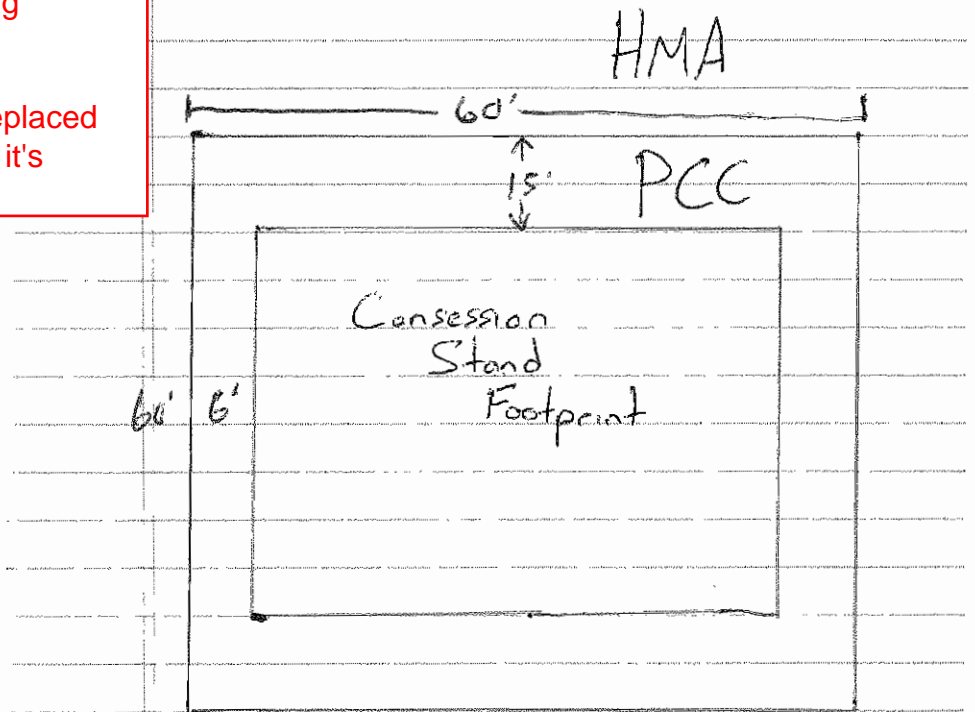 g
eplaced
it's
HMA
60'
15'
PCC
Consession
Stand
Footprint
60' 6'